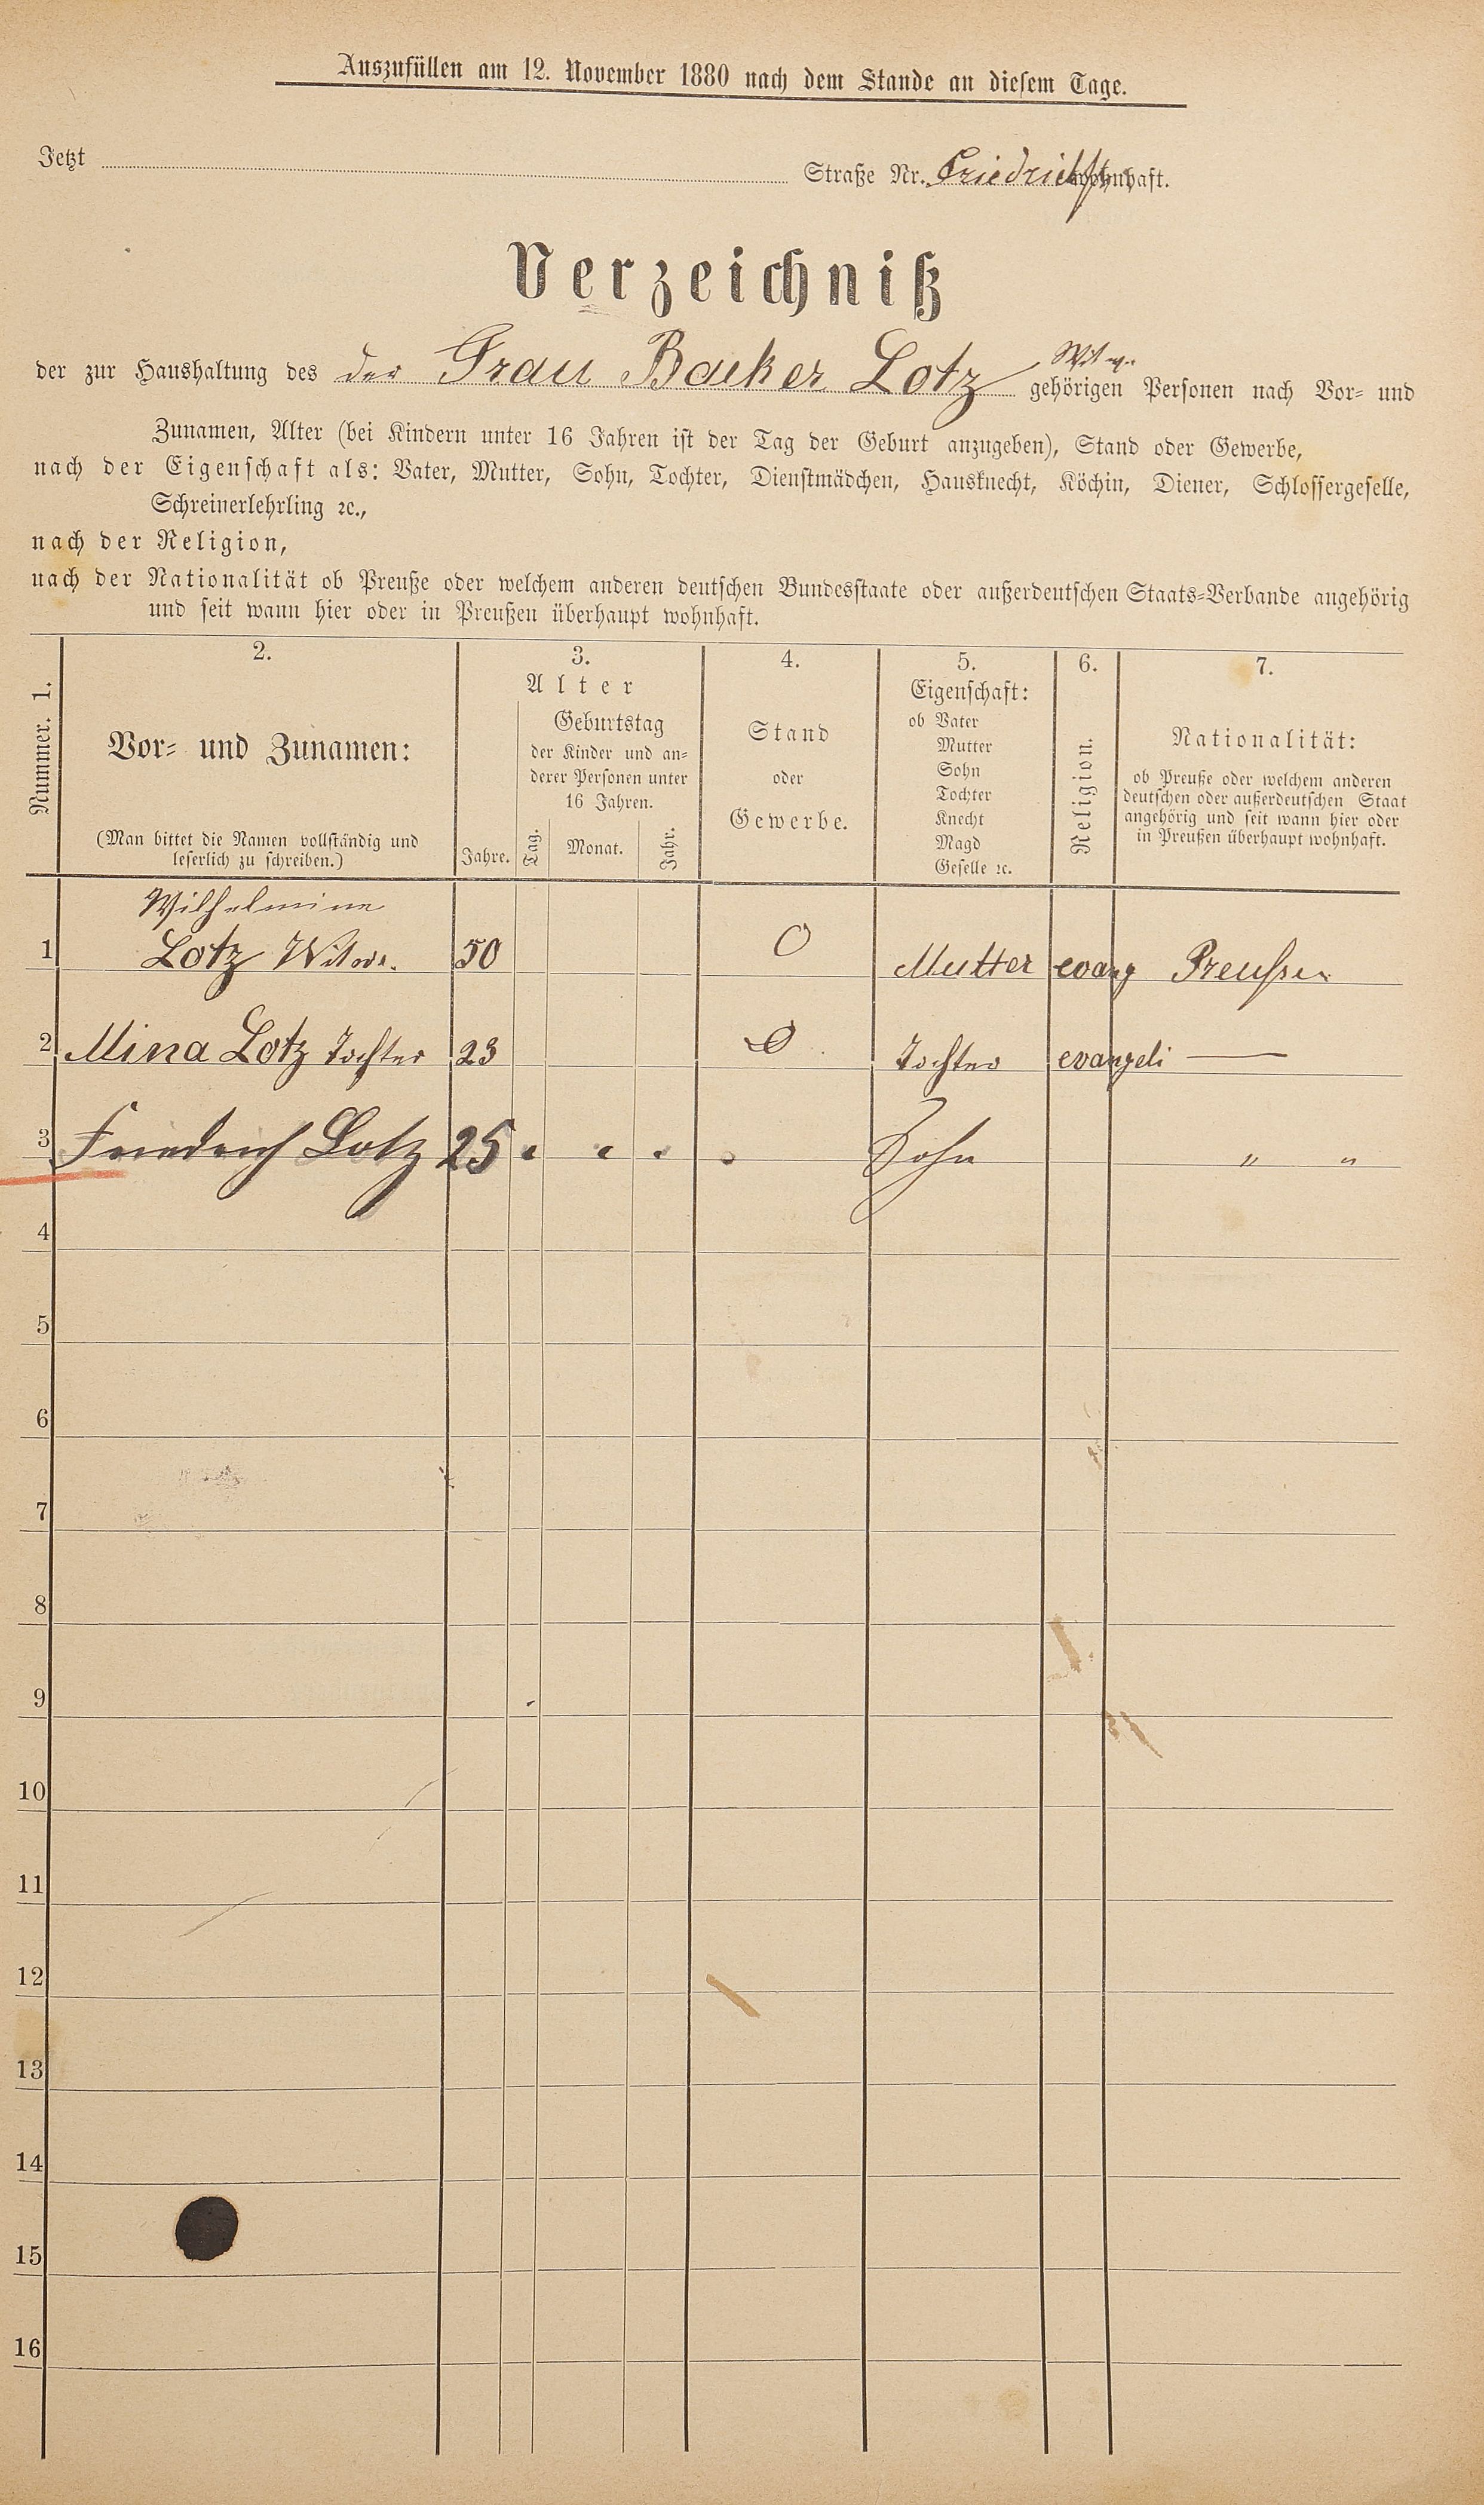 Auszufüllen am 12. November 1880 nach dem Stande an diesem Tage.
Jetzt Straße Nr. Friedrichstr. wohnhaft.
Verzeichniß
der zur Haushaltung des der Frau Backer Lotz Witwe gehörigen Personen nach Vor- und
Zunamen, Alter (bei Kindern unter 16 Jahren ist der Tag der Geburt anzugeben), Stand oder Gewerbe,
nach der Eigenschaft als: Vater, Mutter, Sohn, Tochter, Dienstmädchen, Hausknecht, Köchin, Diener, Schlossergeselle,
Schreinerlehrling ꝛc.,
nach der Religion,
nach der Nationalität ob Preuße oder welchem anderen deutschen Bundesstaate oder außerdeutschen Staats-Verbande angehörig
und seit wann hier oder in Preußen überhaupt wohnhaft.
Nummer. 1.
2.
Vor- und Zunamen:
(Man bittet die Namen vollständig und
leserlich zu schreiben.)
3.
Alter
Jahre.
Geburtstag
der Kinder und an-
derer Personen unter
16 Jahren.
Tag. Monat. Jahr.
4.
Stand
oder
Gewerbe.
5.
Eigenschaft:
ob Vater
Mutter
Sohn
Tochter
Knecht
Magd
Geselle ꝛc.
6.
Religion.
7.
Nationalität:
ob Preuße oder welchem anderen
deutschen oder außerdeutschen Staat
angehörig und seit wann hier oder
in Preußen überhaupt wohnhaft.
Wilhelmine
1 Lotz Witwe. 50 0 Mutter evang Preußen
2 Mina Lotz Tochter 23 0 Tochter evangeli —
3 Friedrich Lotz 25 " " " " Sohn " "
4
5
6
7
8
9
10
11
12
13
14
15
16